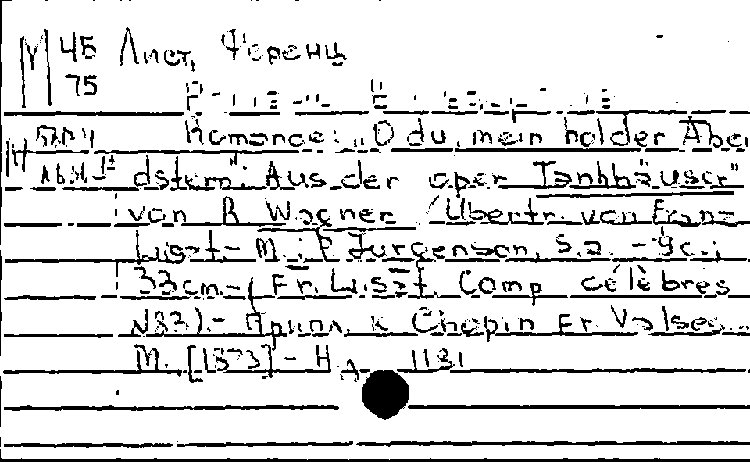 М 45 Лист, Ференц
75
Romance: „O du, mein holder Aben
dstern". Aus der oper Tanhhäuser"
von R Wagner /Übertr. von Franz
Liszt.- M.: P. Jurgenson, s.a. - 9c.;
33cm.- (Fr. Liszt. Comp célèbres
N83).- Прил. к Chopin Fr. Valses...
M. [1873] - Н 1181